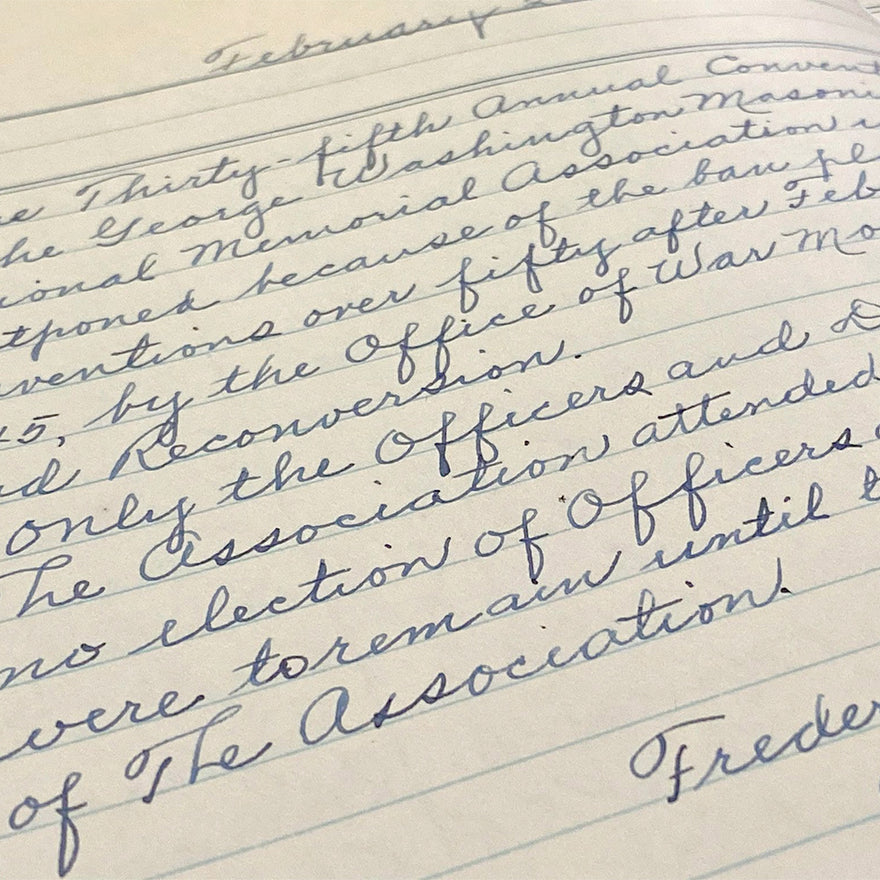 February
e Thirty-fifth Annual Convent
he George Washington Masoni
ional Memorial Association
tponed because of the ban pl
ventions over fifty after Feb
45, by the Office of War Mo
d Reconversion.
only the Officers and D
The Association attended
no election of Officers
were to remain until t
of The Association.
Freder